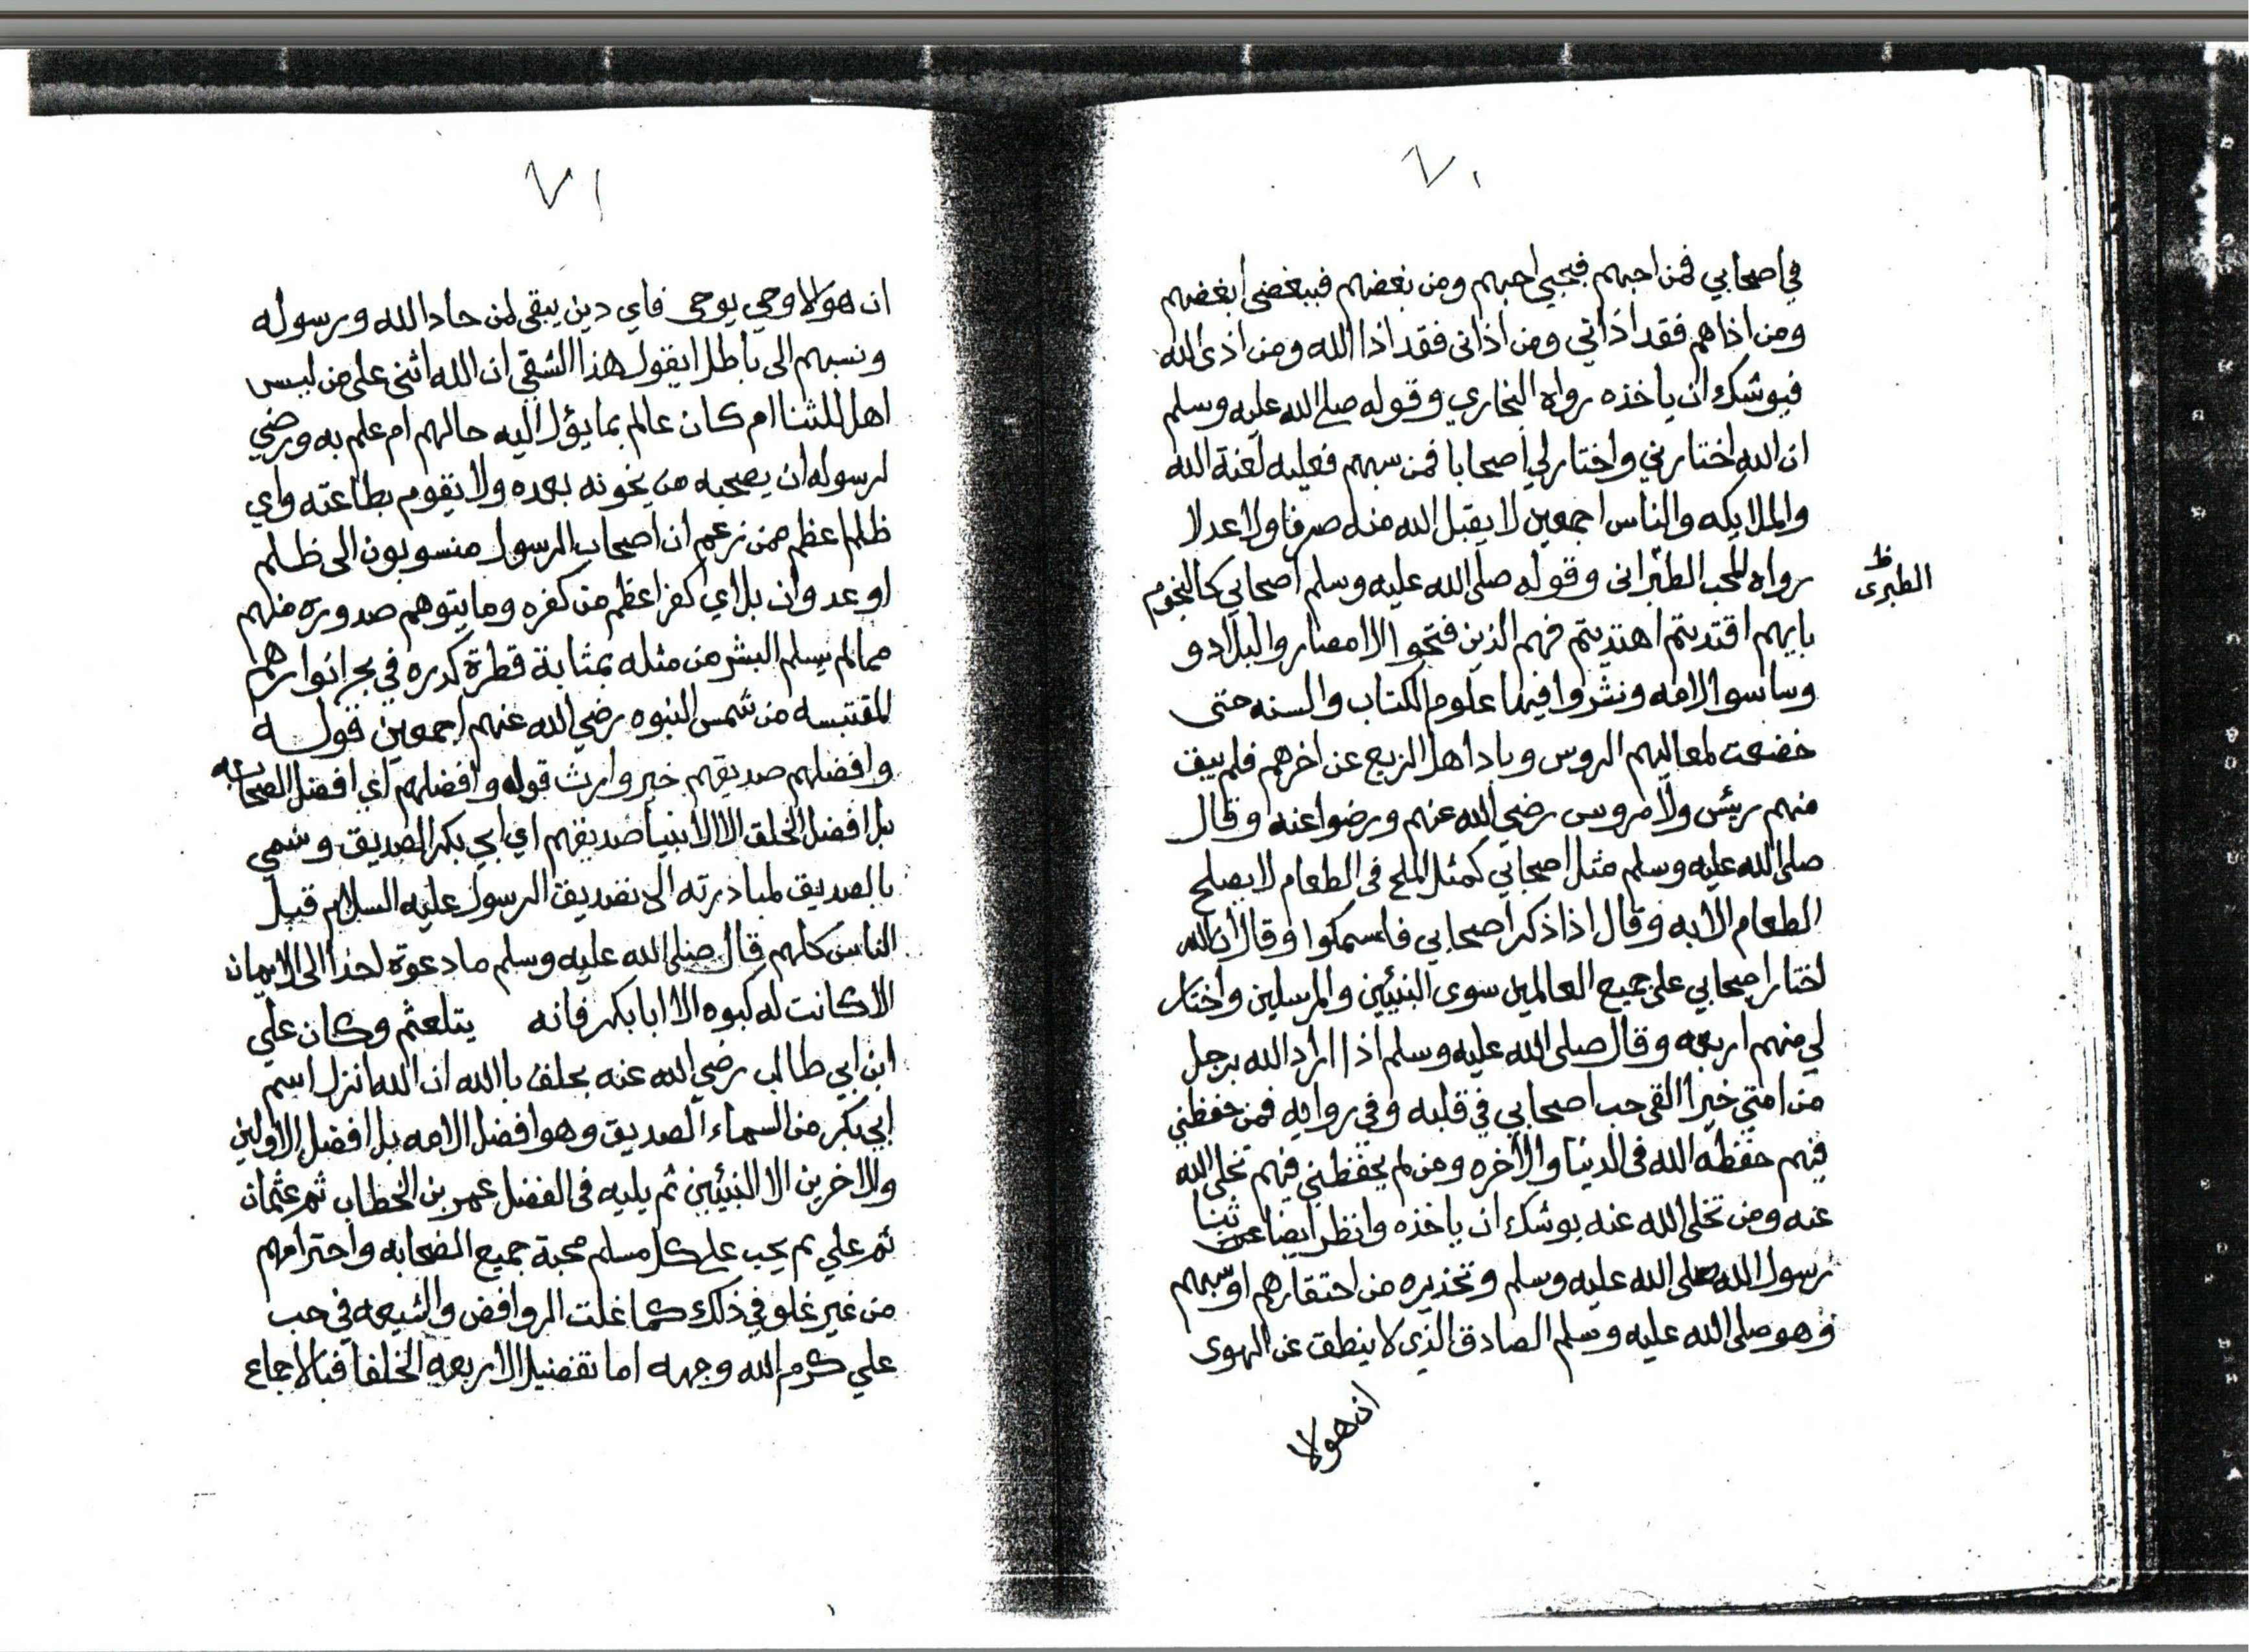 ٧٠
في اصحابي فمن احبهم فبحبي احبهم ومن بغضهم فببغضي ابغضهم
ومن اذاهم فقد اذاني ومن اذانى فقد اذا الله ومن اذى الله
فيوشك ان ياخذه رواه البخاري وقوله صلى الله عليه وسلم
ان الله اختارني واختار لي اصحابا فمن سبهم فعليه لعنة الله
والملايكه والناس اجمعين لا يقبل الله منه صرفا ولا عدلا
رواه المحب الطبرانى وقوله صلى الله عليه وسلم اصحابي كالنجوم
ظ
الطبرى
بايهم اقتديتم اهتديتم فهم الذين فتحوا الامصار والبلاد و
وساسوا الامه ونشروا فيها علوم الكتاب والسنه حتى
خضعت لمعاليهم الروس وباد اهل الزيع عن اخرهم فلم يبق
منهم ريئس ولا مروس رضي الله عنهم ورضوا عنه وقال
صلى الله عليه وسلم مثل اصحابي كمثل الملح فى الطعام لا يصلح
الطعام الا به وقال اذا ذكر اصحابي فامسكوا وقال ان الله
اختار اصحابي على جميع العالمين سوى النبيئين والمرسلين واختار
لي منهم اربعه وقال صلى الله عليه وسلم اذا اراد الله برجل
من امتي خيرا القى حب اصحابي في قلبه وفي روايه فمن حفظني
فيهم حفظه الله فى الدنيا والاخره ومن لم يحفظني فيهم تخلى الله
عنه ومن تخلى الله عنه يوشك ان ياخذه وانظر ايضا ثنا
رسول الله صلى الله عليه وسلم وتحذيره من احتقارهم او سبهم
وهو صلى الله عليه وسلم الصادق الذي لا ينطق عن الهوى
ان هو لا
٧١
ان هو لا وحي يوحى فاي دين يبقى لمن حاد الله ورسوله
ونسبهم الى باطل ايقول هذا الشقي ان الله اثنى على من ليس
اهل للثنا ام كان عالم بما يؤل اليه حالهم ام علم به ورضي
لرسوله ان يصحبه من يخونه بعده ولا يقوم بطاعته واي
ظلم اعظم ممن زعم ان اصحاب الرسول منسوبون الى ظلم
او عدوان بل اي كفر اعظم من كفره وما يتوهم صدوره منهم
مما لم يسلم البشر من مثله بمثابة قطرة كدره في بحر انوارهم
المقتبسه من شمس النبوه رضي الله عنهم اجمعين قوله
وافضلهم صديقهم خير وارث قوله وافضلهم اي افضل الصحابه
بل افضل الخلق الا الانبيا صديقهم اي ابي بكر الصديق وسمي
بالصديق لمبادرته الى تصديق الرسول عليه السلام قبل
الناس كلهم قال صلى الله عليه وسلم ما دعوة احدا الى الايمان
الا كانت له كبوه الا ابا بكر فانه يتلعثم وكان علي
ابن ابي طالب رضي الله عنه يحلف بالله ان الله انزل اسم
ابي بكر من السماء الصديق وهو افضل الامه بل افضل الاولين
والاخرين الا النبيئين ثم يليه فى الفضل عمر بن الخطاب ثم عثمان
ثم علي ثم يجب على كل مسلم محبة جميع الصحابه واحترامهم
من غير غلو في ذلك كما غلت الروافض والشيعه في حب
علي كرم الله وجهه اما تفضيل الاربعه الخلفا فبالاجماع